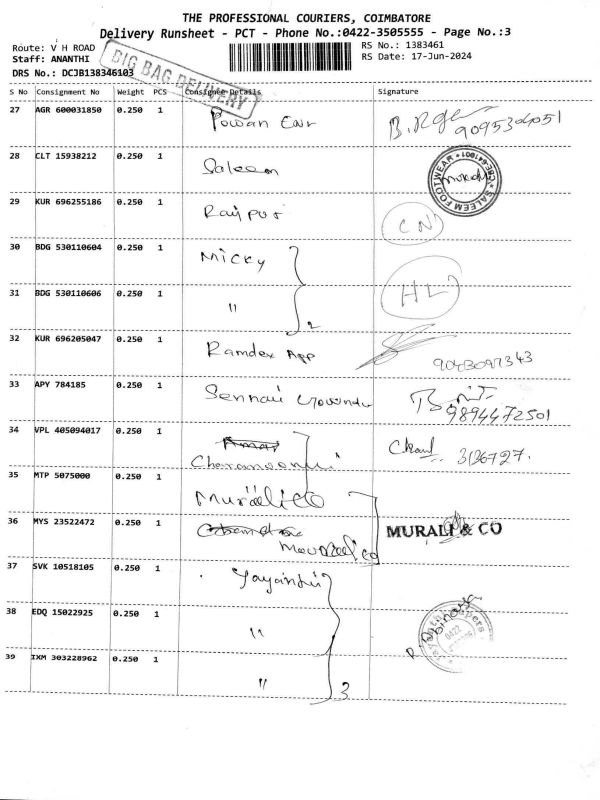 THE PROFESSIONAL COURIERS, COIMBATORE
Delivery Runsheet - PCT - Phone No.:0422-3505555 - Page No.:3
Route: V H ROAD
RS No.: 1383461
Staff: ANANTHI
RS Date: 17-Jun-2024
DRS No.: DCJB138346103
BIG BAG DELIVERY
S No Consignment No Weight PCS Consignee Details Signature
27 AGR 600031850 0.250 1 Powan Ear
9095304051
28 CLT 15938212 0.250 1 Saleem
SALEEM FOOTWEAR * CBE-641001 *
29 KUR 696255186 0.250 1 Raipur CN
30 BDG 530110604 0.250 1 Micky
31 BDG 530110606 0.250 1 " 2 HL
32 KUR 696205047 0.250 1 Ramdex App 9043097343
33 APY 784185 0.250 1 9894472501
34 VPL 405094017 0.250 1 3126727.
35 MTP 5075000 0.250 1 Murali CO
36 MYS 23522472 0.250 1 MURALI & CO
37 SVK 10518105 0.250 1
38 EDQ 15022925 0.250 1 "
0422
39 IXM 303228962 0.250 1 " 3